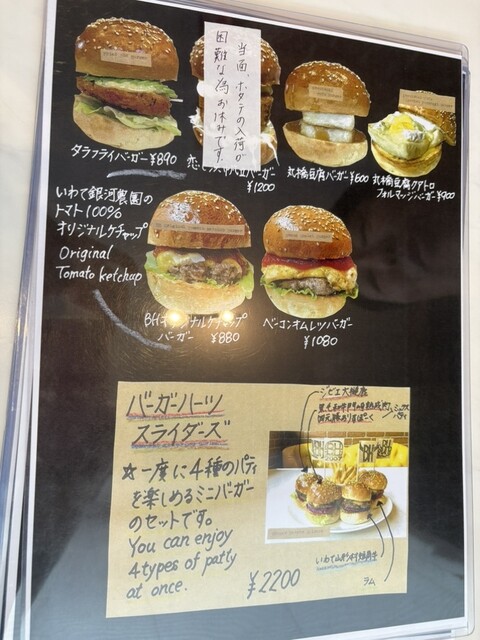 当面、ホタテの入荷が
困難な為お休みです。
タラフライバーガー ¥890
¥1200
丸揚豆腐バーガー ¥600
丸揚豆腐クアトロ
フォルマッジバーガー ¥900
いわて銀河農園の
トマト100%
オリジナルケチャップ
Original
Tomato ketchup
BHオリジナルケチャップ
バーガー ¥880
ベーコンオムレツバーガー
¥1080
バーガーハーツ
スライダーズ
☆一度に4種のパティ
を楽しめるミニバーガー
のセットです。
You can enjoy
4 types of patty
at once.
¥2200
ジビエ大槌鹿
いわて山形村短角牛
ラム